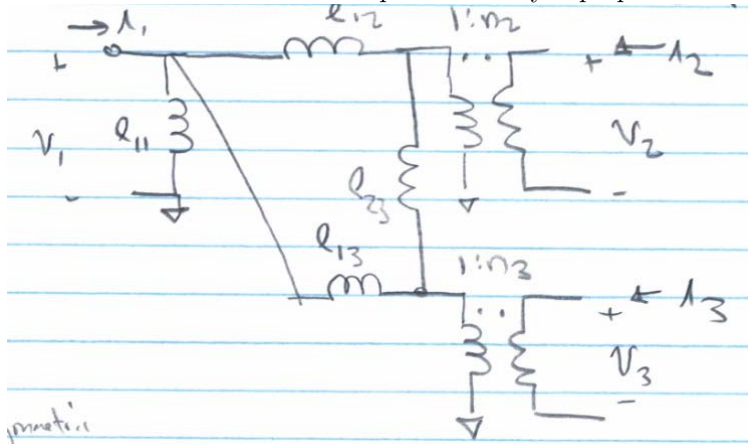 i₁ l₁₂ 1:n₂
+ + i₂
V₁ l₁₁ V₂
- l₂₃ -
l₁₃ 1:n₃
i₃
+
V₃
-